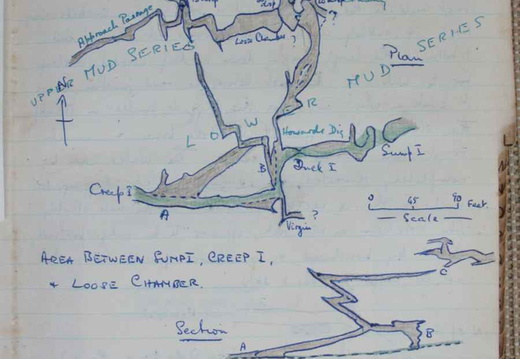 Approach Passage
Loose Chamber ?
??
Plan
UPPER MUD SERIES
MUD SERIES
N
R
L O W
Homemade Dig
B
Duck I
Sump I
Creep I
A
?
Virgin
0 45 90 Feet.
Scale
AREA BETWEEN SUMP I, CREEP I,
& LOOSE CHAMBER.
C
Section
A
B